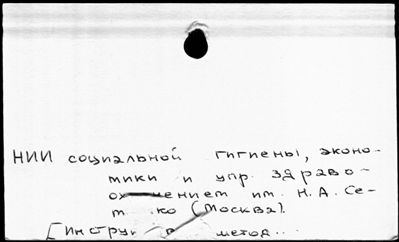 НИИ социальной гигиены, эконо-
мики и упр. здраво-
охранением им. Н.А. Се-
машко (Москва).
[Инструк. метод...